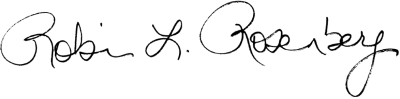 Robin L. Rosenberg